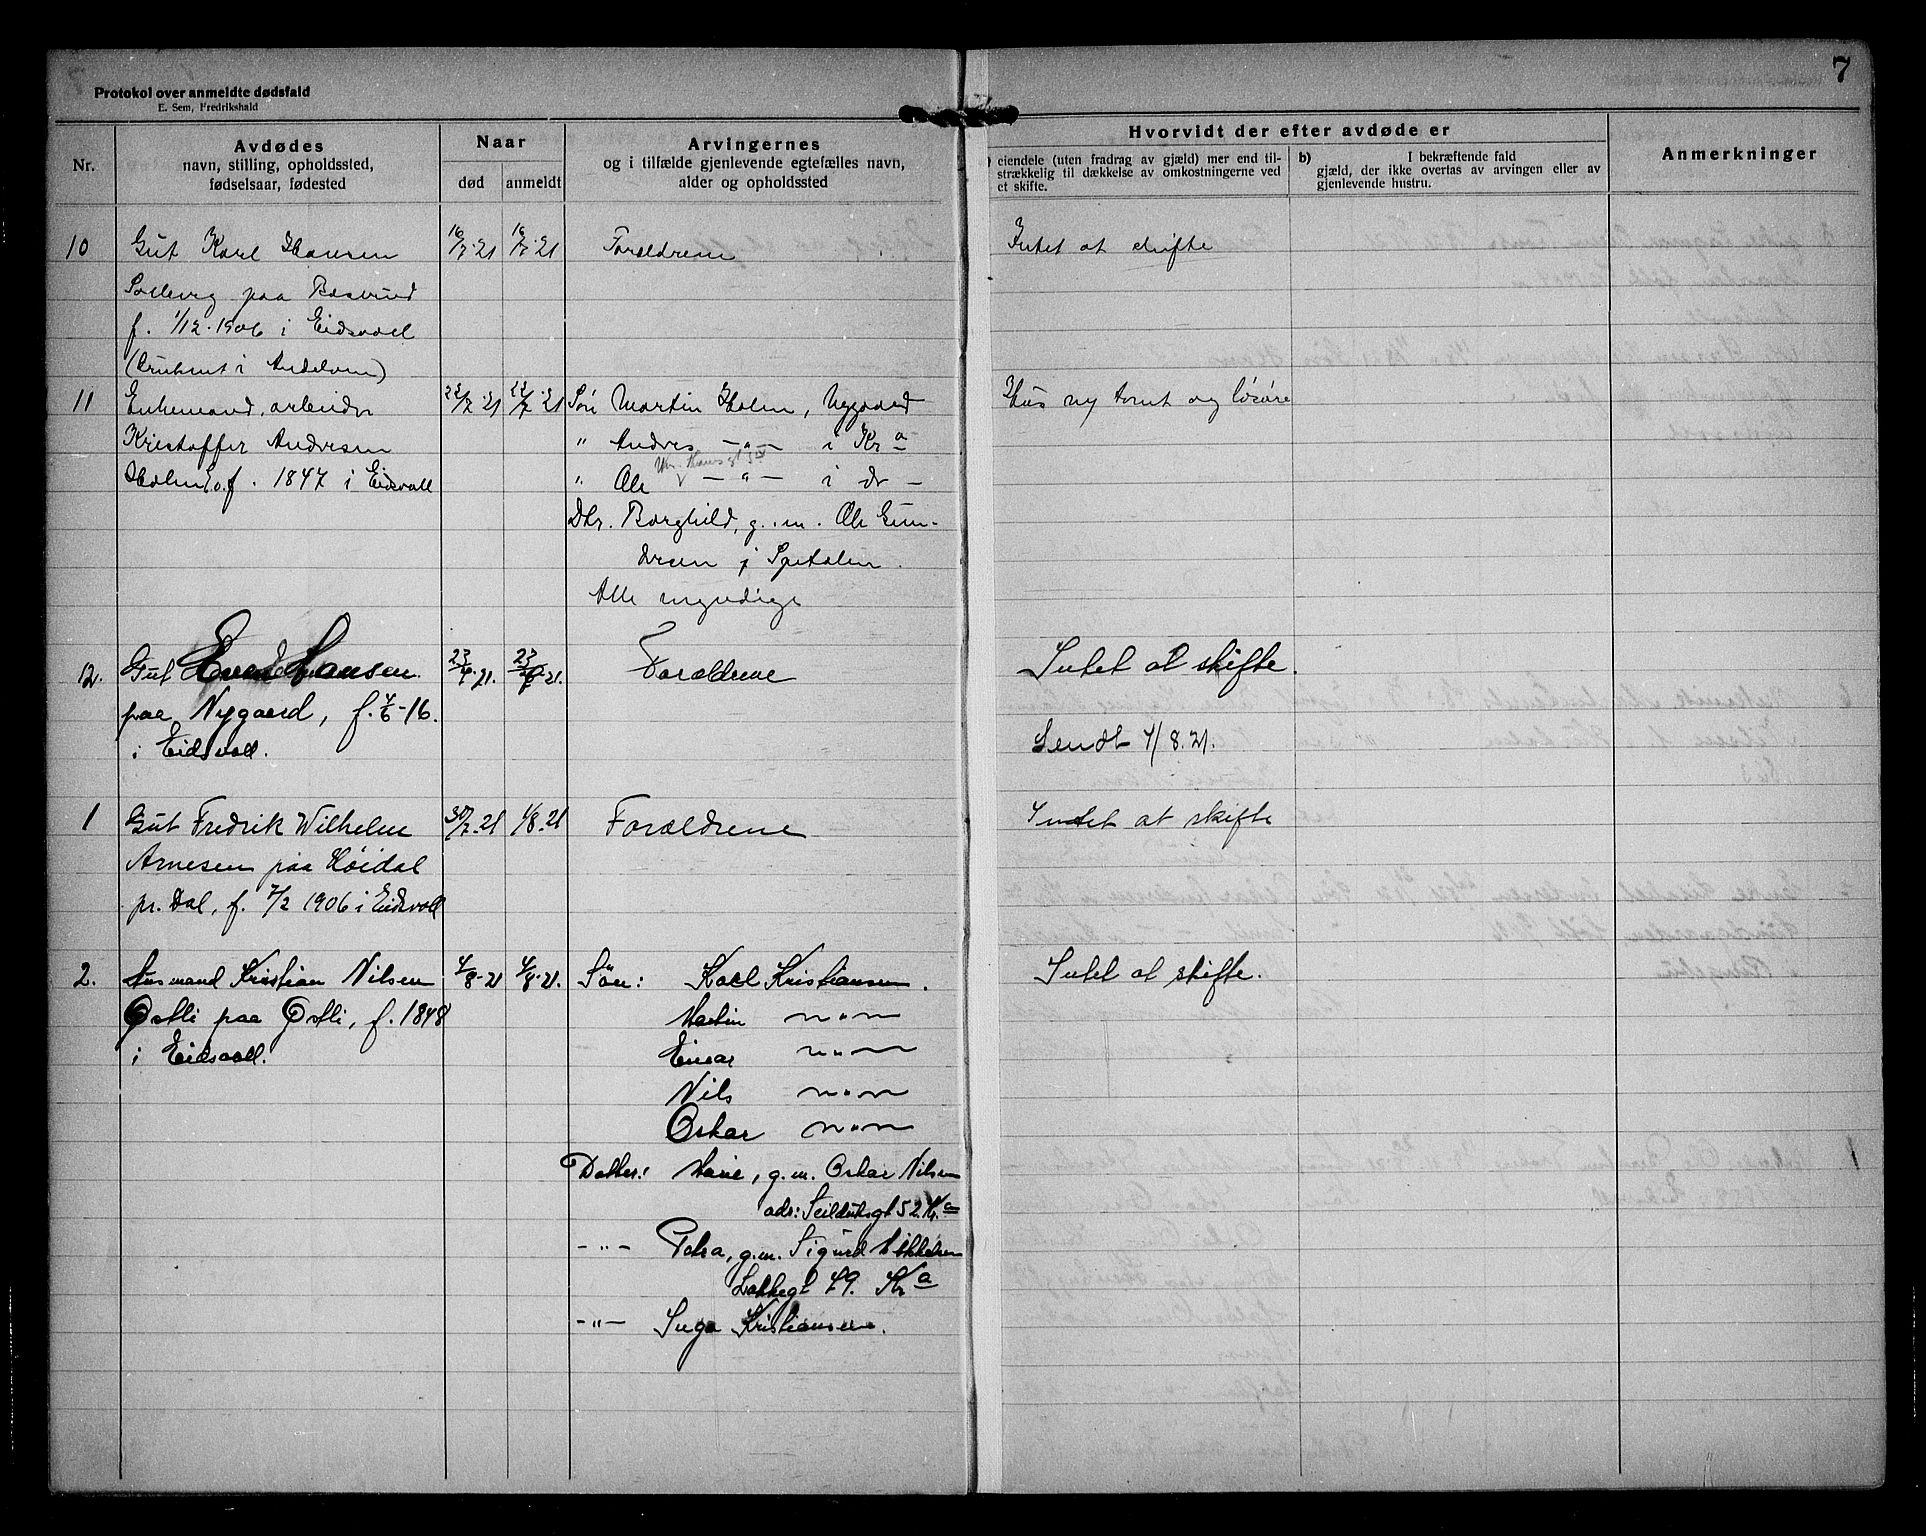 7
Protokol over anmeldte dødsfald
E. Sem, Fredrikshald
Nr.
Avdødes
navn, stilling, opholdssted,
fødselsaar, fødested
Naar
død
anmeldt
Arvingernes
og i tilfælde gjenlevende egtefælles navn,
alder og opholdssted
Hvorvidt der efter avdøde er
eiendele (uten fradrag av gjæld) mer end til-
strækkelig til dækkelse av omkostningerne ved
et skifte.
b)
I bekræftende fald
gjæld, der ikke overtas av arvingen eller av
gjenlevende hustru.
Anmerkninger
10 Gut Karl Hansen 16/7-21 16/7-21 Forældrene Intet at skifte
paa
f. 1/12-1906 i Eidsvoll
(Druknet i Andelven)
11 Enkemand, arbeider 22/7-21 22/7-21 Søn Martin Holm, Nygaard Hus uy tomt og løsøre
Kristoffer Andresen " Andres -"- i Kr a
Holm f. 1847 i Eidsvoll " Ole -"- i do -
Dtr. Borghild, g. m. Ole Gun-
dersen i Spetalen.
Alle myndige
12. Gut Hansen 23/7-21. 23/7-21. Forældrene Intet at skifte.
paa Nygaard, f. 4/6-16.
i Eidsvoll. Sendt 4/8.21.
1 Gut Fredrik Wilhelm 30/7-21 1/8.21 Forældrene Intet at skifte
Arnesen paa Høidal
pr. Dal, f. 7/2 1906 i Eidsvoll
2. Husmand Kristian Nilsen 4/8-21 4/8-21. Søn: Karl Kristiansen. Intet at skifte.
Østli paa Østli, f. 1848 Martin -"-
i Eidsvoll. Einar -"-
Nils -"-
Oskar -"-
Datter: Marie, g. m. Oskar Nilsen
adr: Seilduksgt 52 Kr. a
-"- Petra, g. m. Sigurd Mikkelsen
Lakkegt 49. Kr a
-"- Inga Kristiansen.